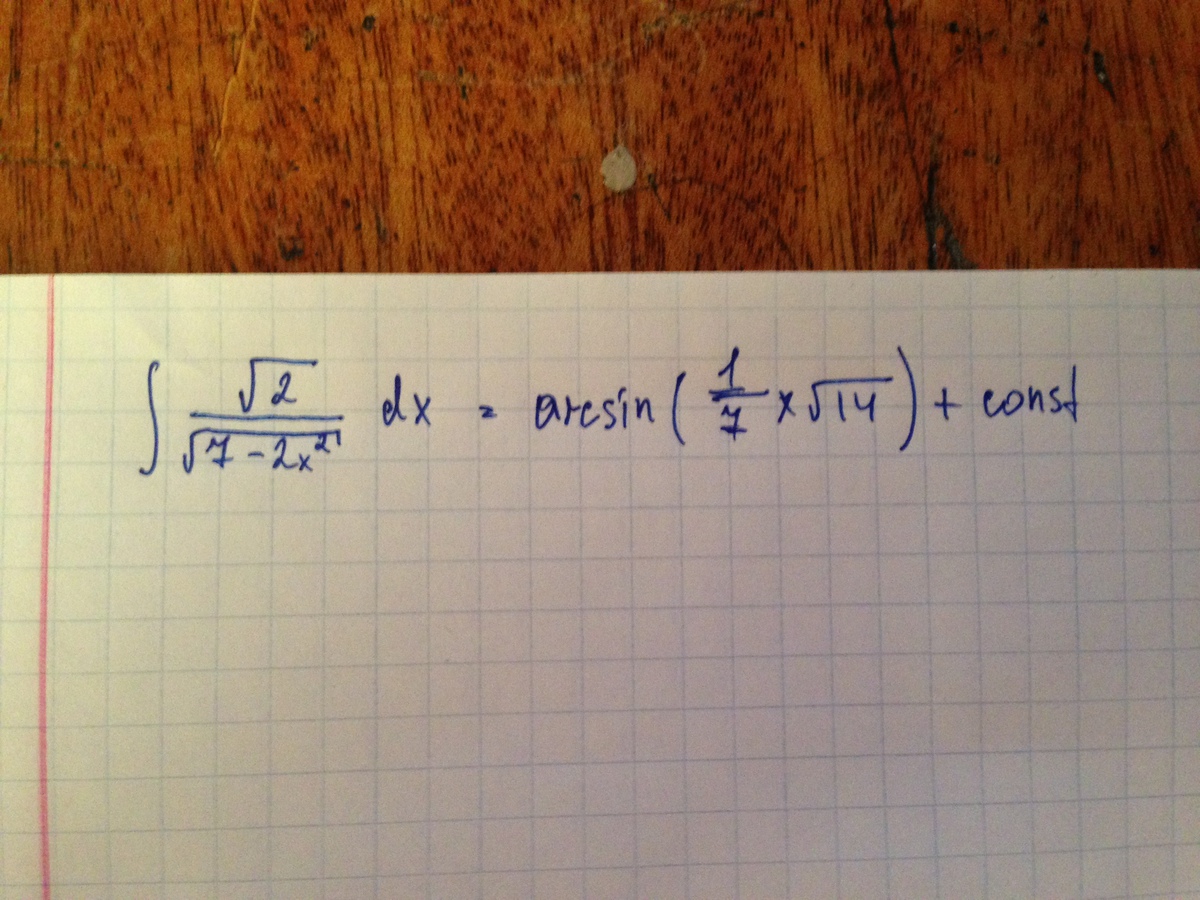 ∫ √2 / √(7 - 2x²) dx = arcsin ( 1/7 x √14 ) + const